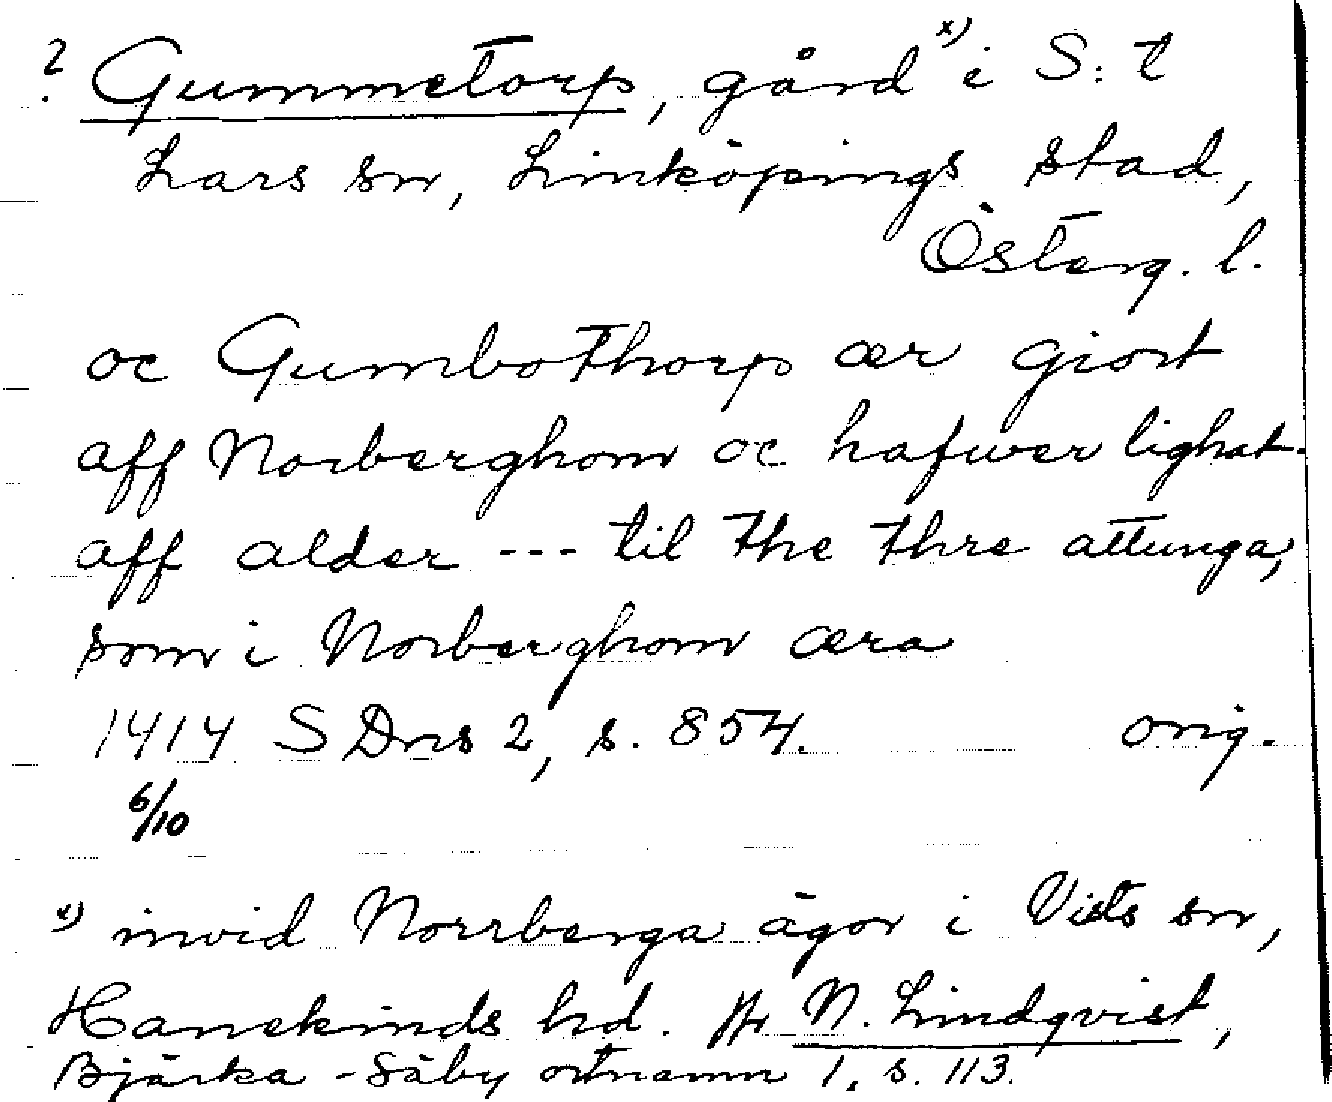 ? Gummetorp, gård x) i S:t
Lars sn, Linköpings stad,
Österg. l.
oc Gumbothorp ær giort
aff Norberghom oc hafwer lighat
aff alder --- til the thre attunga,
som i Norberghom æra
1414 SDns 2, s. 854. orig.
6/10
x) invid Norrberga ägor i Vists sn,
Hanekinds hd. Jfr N. Lindqvist,
Bjärka-Säby ortnamn 1, s. 113.